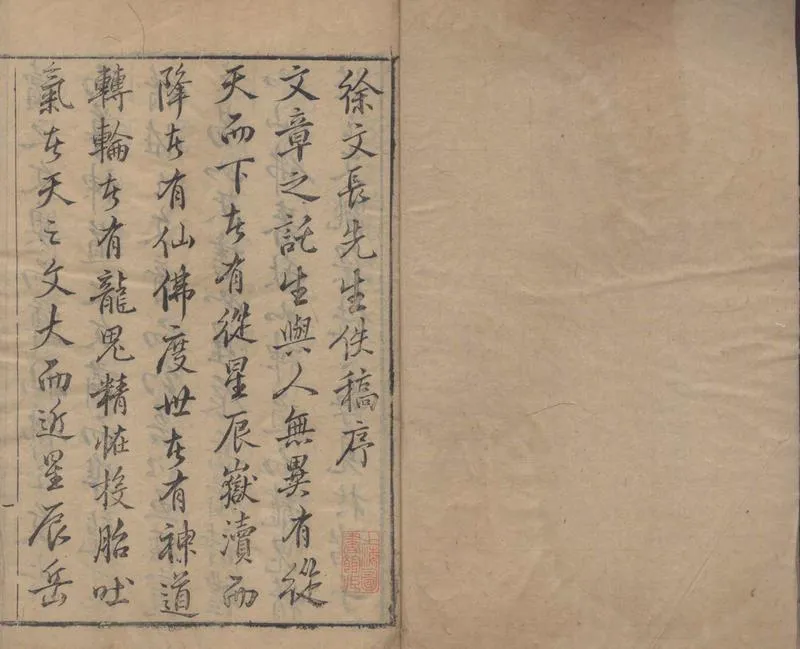 徐文長先生佚稿序
文章之託生與人無異有從
天而下者有從星辰嶽瀆而
降者有仙佛度世者有神道
轉輪者有龍鬼精怪投胎吐
氣者天之文大而近星辰岳